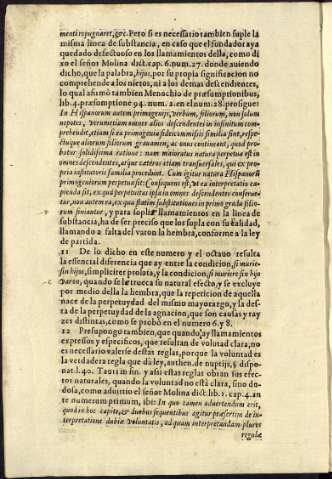 menti repugnaret, &c. Pero si es necessario tambien suple la
misma linea de substancia, en caso que el fundador aya
quedado defectuoso en los llamamientos della, como di
xo el señor Molina dict. cap. 6. num. 27. donde auiendo
dicho, que la palabra, hijos, por su propia significacion no
comprehende a los nietos, ni a los demas descendientes,
lo qual afirmò tambien Menochio de præsumptionibus,
lib. 4. præsumptione 94. num. 2. en el num. 28. prosigue:
In Hispanorum autem primogenijs, verbum, filiorum, non solum
nepotes, verumetiam omnes alios descendentes in infinitum com-
prehendit, etiam si ea primogenia fideicommissis similia sint, respe-
ctuque aliorum pliorum grauamen, ac onus contineat, quod pro-
batur solidissima ratione: nam maioratus natura perpetua est in
omnes descendentes, atque cæteros etiam transuersales, qui ex pro-
pria institutoris familia procedunt. Cum igitur natura Hispanorũ
primogeniorum perpetua sit: consequens est, vt ea interpretatio ca-
pienda sit, ex qua perpetuitas ipsa in omnes descendentes conserue-
tur, non autem ea, ex qua statim substitutiones in primo gradu filio-
rum finiantur, y para suplir llamamientos en la linea de
substancia, ha de ser preciso que los supla con su calidad,
llamando a falta del varon la hembra, conforme a la ley
de partida.
11 De lo dicho en este numero y el octauo resulta
la essencial diferencia que ay entre la condicion, si murie-
sin hijos, simpliciter prolata, y la condicion, si muriere sin hijo
varon, quando se le trueca su natural efecto, y se excluye
por medio della la hembra, que la repeticion de aquella
nace de la perpetuydad del mismo mayorazgo, y la des-
ta de la perpetuydad de la agnacion, que son causas y ray
zes distintas, como se probò en el numero 6. y 8.
12 Presupongo tambien, que quando ay llamamientos
expressos y especificos, que resultan de volutad clara, no
es necessario valerse destas reglas, porque la voluntad es
la verdadera regla que dà ley, authen. de nuptijs, § dispo-
nat. l. 40. Tauri in fin. y assi estas reglas obran sus efec-
tos naturales, quando la voluntad no està clara, sino du-
dosa, como aduirtio el señor Molina dict. lib. 1. cap. 4. an
te numerum primum, ibi: In quo tamen aduertendum erit,
quod in hoc capite, & duobus sequentibus agitur præsertim de in-
terpretatione dubiæ voluntatis, ad quam interpretandam plures
regulæ